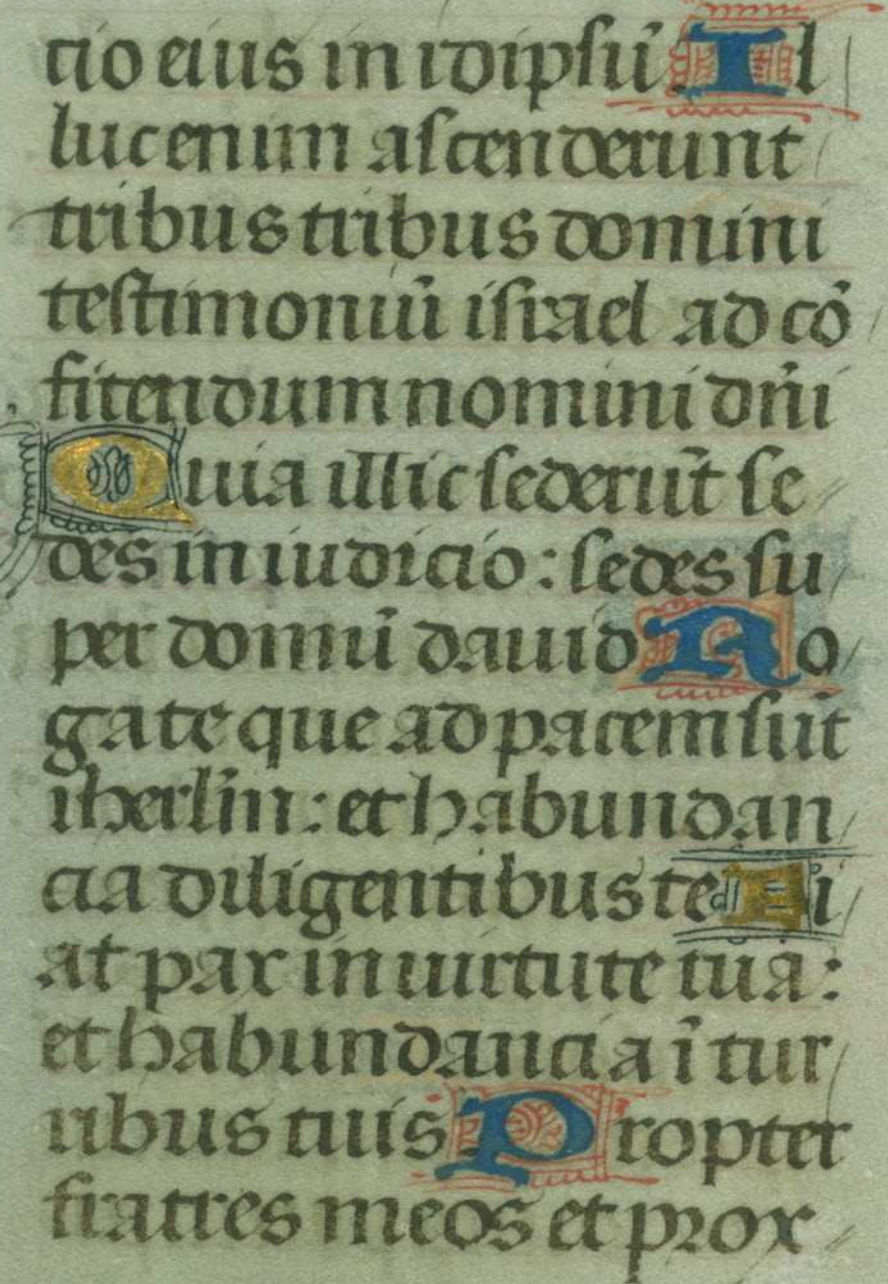 cio eius in idipsū Il
luc enim ascenderunt
tribus tribus domini
testimoniū israel ad cō
fitendum nomini dn̄i
Quia illic sederūt se
des in iudicio : sedes su
per domū dauid Ro
gate que ad pacem sūt
iherl̄m : et habundan
cia diligentibus te Fi
at pax in uirtute tua :
et habundancia ī tur
ribus tuis Propter
fratres meos et prox